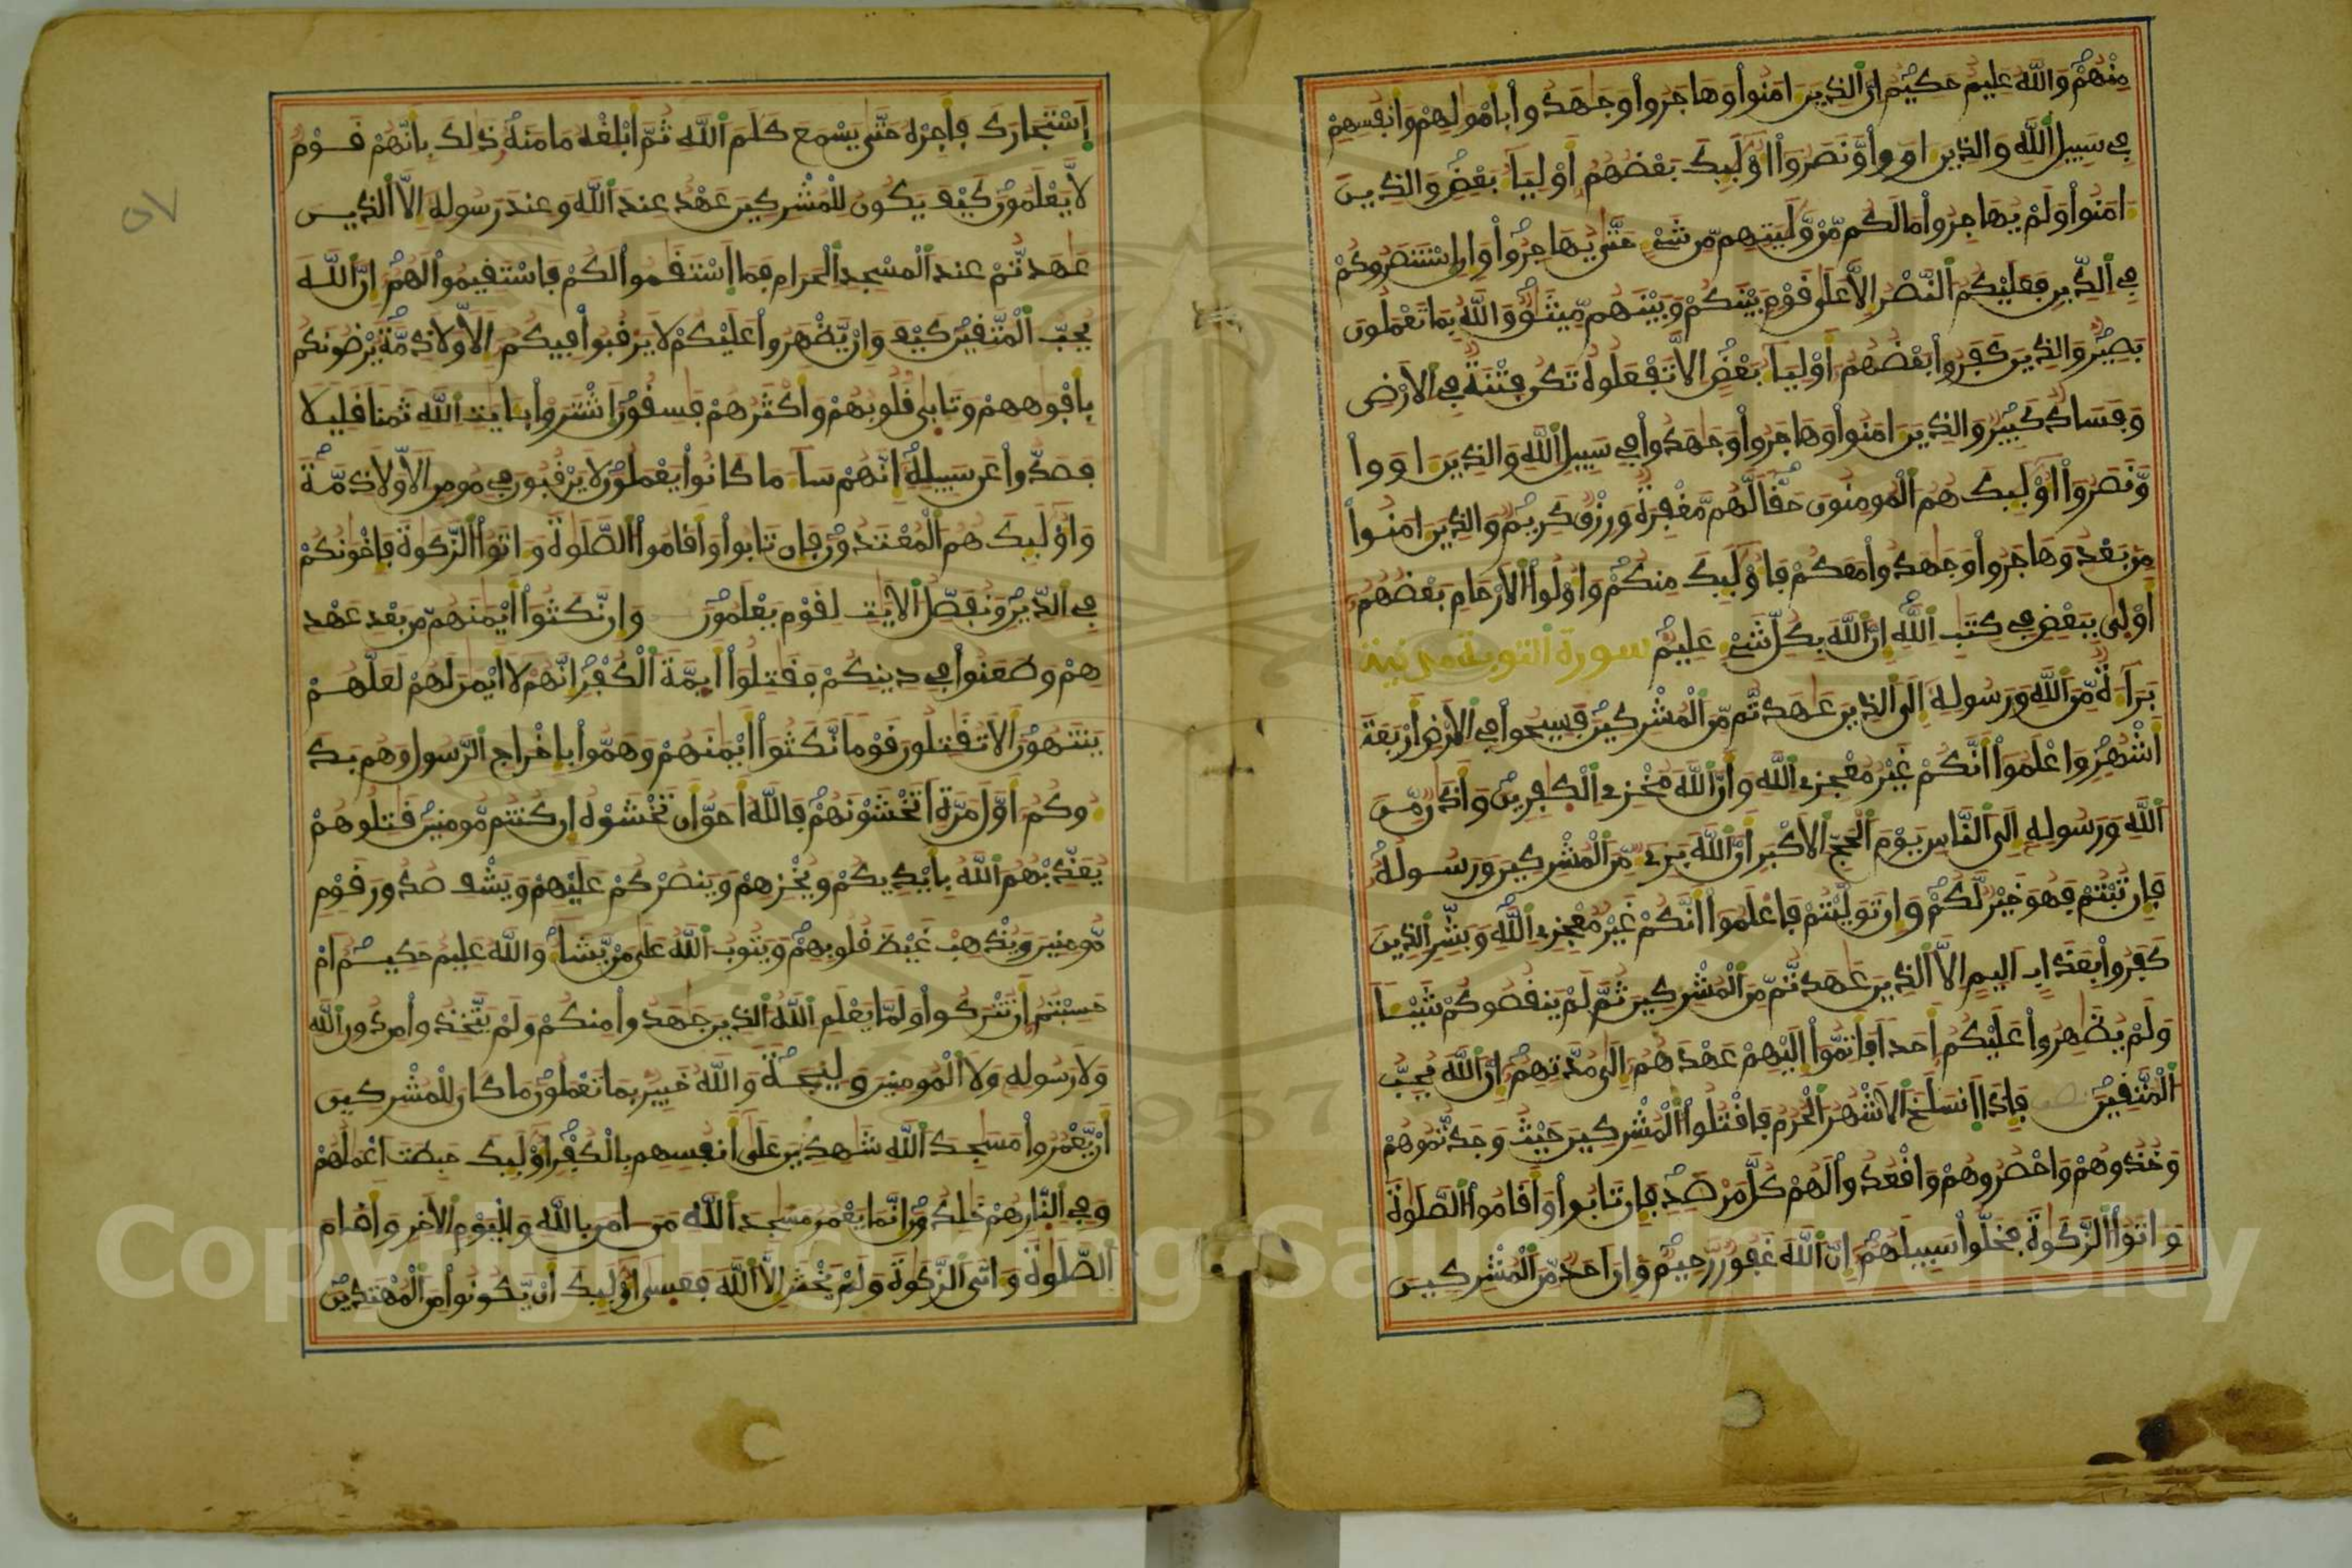 مِنْهُمْ وَاللَّهُ عَلِيمٌ حَكِيمٌ اِنَّ الذِينَ ءَامَنُوا وَهَاجَرُوا وَجَٰهَدُوا بِأَمْوَٰلِهِمْ وَأَنفُسِهِمْ
فِي سَبِيلِ اللَّهِ وَالذِينَ ءَاوَوا وَّنَصَرُوا أُوْلَٰئِكَ بَعْضُهُمُ أَوْلِيَاءُ بَعْضٍ وَالذِينَ
ءَامَنُوا وَلَمْ يُهَاجِرُوا مَا لَكُم مِّنْ وَّلَٰيَتِهِم مِّن شَيْءٍ حَتَّىٰ يُهَاجِرُوا وَإِنِ اِسْتَنصَرُوكُمْ
فِي الدِّينِ فَعَلَيْكُمُ النَّصْرُ إِلَّا عَلَىٰ قَوْمٍ بَيْنَكُمْ وَبَيْنَهُم مِّيثَٰقٌ وَاللَّهُ بِمَا تَعْمَلُونَ
بَصِيرٌ وَالذِينَ كَفَرُوا بَعْضُهُمُ أَوْلِيَاءُ بَعْضٍ إِلَّا تَفْعَلُوهُ تَكُن فِتْنَةٌ فِي الْأَرْضِ
وَفَسَادٌ كَبِيرٌ وَالذِينَ ءَامَنُوا وَهَاجَرُوا وَجَٰهَدُوا فِي سَبِيلِ اللَّهِ وَالذِينَ ءَاوَوا
وَّنَصَرُوا أُوْلَٰئِكَ هُمُ الْمُومِنُونَ حَقًّا لَّهُم مَّغْفِرَةٌ وَرِزْقٌ كَرِيمٌ وَالذِينَ ءَامَنُوا
مِن بَعْدُ وَهَاجَرُوا وَجَٰهَدُوا مَعَكُمْ فَأُوْلَٰئِكَ مِنكُمْ وَأُوْلُوا الْأَرْحَامِ بَعْضُهُمُ
أَوْلَىٰ بِبَعْضٍ فِي كِتَٰبِ اللَّهِ إِنَّ اللَّهَ بِكُلِّ شَيْءٍ عَلِيمٌ سورة التوبة مدنية
بَرَاءَةٌ مِّنَ اللَّهِ وَرَسُولِهِ إِلَى الذِينَ عَٰهَدتُّم مِّنَ الْمُشْرِكِينَ فَسِيحُوا فِي الْأَرْضِ أَرْبَعَةَ
أَشْهُرٍ وَاعْلَمُوا أَنَّكُمْ غَيْرُ مُعْجِزِي اللَّهِ وَأَنَّ اللَّهَ مُخْزِي الْكَٰفِرِينَ وَأَذَٰنٌ مِّنَ
اللَّهِ وَرَسُولِهِ إِلَى النَّاسِ يَوْمَ الْحَجِّ الْأَكْبَرِ أَنَّ اللَّهَ بَرِيءٌ مِّنَ الْمُشْرِكِينَ وَرَسُولُهُ
فَإِن تُبْتُمْ فَهُوَ خَيْرٌ لَّكُمْ وَإِن تَوَلَّيْتُمْ فَاعْلَمُوا أَنَّكُمْ غَيْرُ مُعْجِزِي اللَّهِ وَبَشِّرِ الذِينَ
كَفَرُوا بِعَذَابٍ أَلِيمٍ إِلَّا الذِينَ عَٰهَدتُّم مِّنَ الْمُشْرِكِينَ ثُمَّ لَمْ يَنقُصُوكُمْ شَيْئًا
وَلَمْ يُظَٰهِرُوا عَلَيْكُمُ أَحَدًا فَأَتِمُّوا إِلَيْهِمْ عَهْدَهُمُ إِلَىٰ مُدَّتِهِمُ إِنَّ اللَّهَ يُحِبُّ
الْمُتَّقِينَ فَإِذَا اَنسَلَخَ الْأَشْهُرُ الْحُرُمُ فَاقْتُلُوا الْمُشْرِكِينَ حَيْثُ وَجَدتُّمُوهُمْ
وَخُذُوهُمْ وَاحْصُرُوهُمْ وَاقْعُدُوا لَهُمْ كُلَّ مَرْصَدٍ فَإِن تَابُوا وَأَقَامُوا الصَّلَوٰةَ
وَءَاتَوُا الزَّكَوٰةَ فَخَلُّوا سَبِيلَهُمُ إِنَّ اللَّهَ غَفُورٌ رَّحِيمٌ وَإِنَ أَحَدٌ مِّنَ الْمُشْرِكِينَ
اَسْتَجَارَكَ فَأَجِرْهُ حَتَّىٰ يَسْمَعَ كَلَٰمَ اللَّهِ ثُمَّ أَبْلِغْهُ مَامَنَهُ ذَٰلِكَ بِأَنَّهُمْ قَوْمٌ
لَّا يَعْلَمُونَ كَيْفَ يَكُونُ لِلْمُشْرِكِينَ عَهْدٌ عِندَ اللَّهِ وَعِندَ رَسُولِهِ إِلَّا الذِينَ
عَٰهَدتُّمْ عِندَ الْمَسْجِدِ الْحَرَامِ فَمَا اَسْتَقَٰمُوا لَكُمْ فَاسْتَقِيمُوا لَهُمُ إِنَّ اللَّهَ
يُحِبُّ الْمُتَّقِينَ كَيْفَ وَإِنْ يَّظْهَرُوا عَلَيْكُمْ لَا يَرْقُبُوا فِيكُمُ إِلًّا وَلَا ذِمَّةً يُرْضُونَكُم
بِأَفْوَٰهِهِمْ وَتَابَىٰ قُلُوبُهُمْ وَأَكْثَرُهُمْ فَٰسِقُونَ اَشْتَرَوْا بِـَٔايَٰتِ اللَّهِ ثَمَنًا قَلِيلًا
فَصَدُّوا عَن سَبِيلِهِ إِنَّهُمْ سَاءَ مَا كَانُوا يَعْمَلُونَ لَا يَرْقُبُونَ فِي مُومِنٍ إِلًّا وَلَا ذِمَّةً
وَأُوْلَٰئِكَ هُمُ الْمُعْتَدُونَ فَإِن تَابُوا وَأَقَامُوا الصَّلَوٰةَ وَءَاتَوُا الزَّكَوٰةَ فَإِخْوَٰنُكُمْ
فِي الدِّينِ وَنُفَصِّلُ الْأيَٰتِ لِقَوْمٍ يَعْلَمُونَ وَإِن نَّكَثُوا أَيْمَٰنَهُم مِّن بَعْدِ عَهْدِ
هِمْ وَطَعَنُوا فِي دِينِكُمْ فَقَٰتِلُوا أَيِمَّةَ الْكُفْرِ إِنَّهُمْ لَا أَيْمَٰنَ لَهُمْ لَعَلَّهُمْ
يَنتَهُونَ أَلَا تُقَٰتِلُونَ قَوْمًا نَّكَثُوا أَيْمَٰنَهُمْ وَهَمُّوا بِإِخْرَاجِ الرَّسُولِ وَهُم بَدَ
ءُوكُمُ أَوَّلَ مَرَّةٍ أَتَخْشَوْنَهُمْ فَاللَّهُ أَحَقُّ أَن تَخْشَوْهُ إِن كُنتُم مُّومِنِينَ قَٰتِلُوهُمْ
يُعَذِّبْهُمُ اللَّهُ بِأَيْدِيكُمْ وَيُخْزِهِمْ وَيَنصُرْكُمْ عَلَيْهِمْ وَيَشْفِ صُدُورَ قَوْمٍ
مُّومِنِينَ وَيُذْهِبْ غَيْظَ قُلُوبِهِمْ وَيَتُوبُ اللَّهُ عَلَىٰ مَنْ يَّشَاءُ وَاللَّهُ عَلِيمٌ حَكِيمٌ أَمْ
حَسِبْتُمُ أَن تُتْرَكُوا وَلَمَّا يَعْلَمِ اللَّهُ الذِينَ جَٰهَدُوا مِنكُمْ وَلَمْ يَتَّخِذُوا مِن دُونِ اللَّهِ
وَلَا رَسُولِهِ وَلَا الْمُومِنِينَ وَلِيجَةً وَاللَّهُ خَبِيرٌ بِمَا تَعْمَلُونَ مَا كَانَ لِلْمُشْرِكِينَ
أَنْ يَّعْمُرُوا مَسَٰجِدَ اللَّهِ شَٰهِدِينَ عَلَىٰ أَنفُسِهِم بِالْكُفْرِ أُوْلَٰئِكَ حَبِطَتَ أَعْمَٰلُهُمْ
وَفِي النَّارِ هُمْ خَٰلِدُونَ إِنَّمَا يَعْمُرُ مَسَٰجِدَ اللَّهِ مَنَ ءَامَنَ بِاللَّهِ وَالْيَوْمِ الْأخِرِ وَأَقَامَ
الصَّلَوٰةَ وَءَاتَى الزَّكَوٰةَ وَلَمْ يَخْشَ إِلَّا اللَّهَ فَعَسَىٰ أُوْلَٰئِكَ أَنْ يَّكُونُوا مِنَ الْمُهْتَدِينَ
1957
Copyright © King Saud University